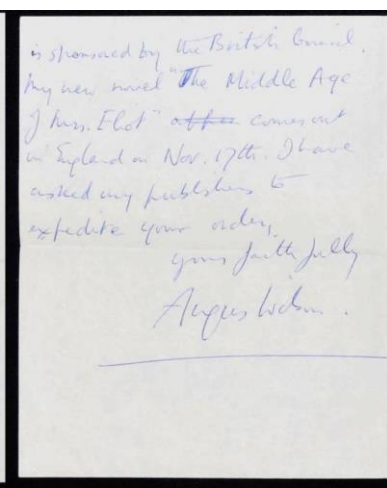 is sponsored by the British Council.
My new novel "The Middle Age
of Mrs. Eliot" comes out
in England on Nov. 17th. I have
asked my publishers to
expedite your order.
yours faithfully
Angus Wilson.